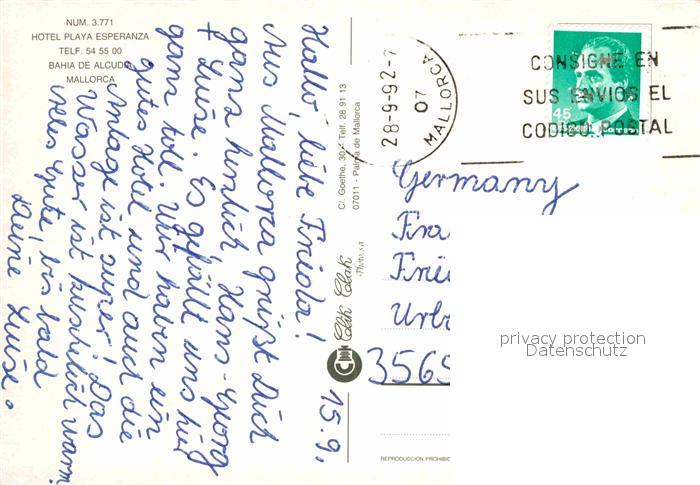 NUM. 3.771
HOTEL PLAYA ESPERANZA
TELF. 54 55 00
BAHIA DE ALCUDIA
MALLORCA
15.9.
Hallo, liebe Frieda!
Aus Mallorca grüßt Dich
ganz herzlich Hans-Georg
+ Luise. Es gefällt uns hier
ganz toll. Wir haben ein
gutes Hotel und auch die
Anlage ist super! Das
Wasser ist herrlich warm.
Alles Gute, bis bald
Deine Luise.
C/. Goethe, 30 - Telf. 28 91 13
07011 - Palma de Mallorca
Clik Clak
Photo, s.a.
28-9-92-7
07
MALLORCA
CONSIGNE EN
SUS ENVIOS EL
CODIGO POSTAL
45
Germany
Fra
Frie
Urb
3565
privacy protection
Datenschutz
REPRODUCCION PROHIBI